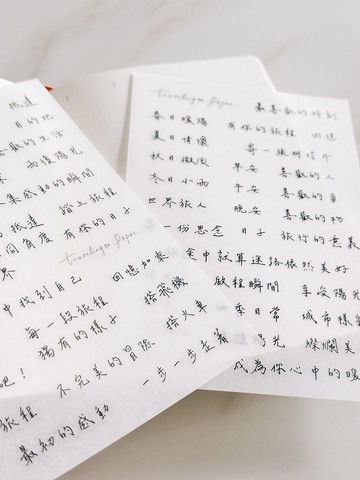 抵達
目的地
喜歡的生活
雨後陽光
收集感動的瞬間
踏上旅程
抵達
不同角度 有你的日子
界
Tiambinga Paper
中找到自己 回憶如衷
每一段旅程 搭飛機
獨有的樣子
搭火車
吧！ 不完美的冒險
旅程 一步一步走著
最初的感動
最喜歡的時刻
春日暖陽 有你的旅程
夏日情懷 寄一張明信片
秋日微風 早安 喜歡的人
冬日小雨 午安 喜歡的事
世界旅人 晚安 喜歡的物
一份思念 日子 旅行的意義
途中就算迷路依然美好
啟程瞬間 享受陽光
季日常 城市樣
陽光 燦爛美
成為你心中的暖